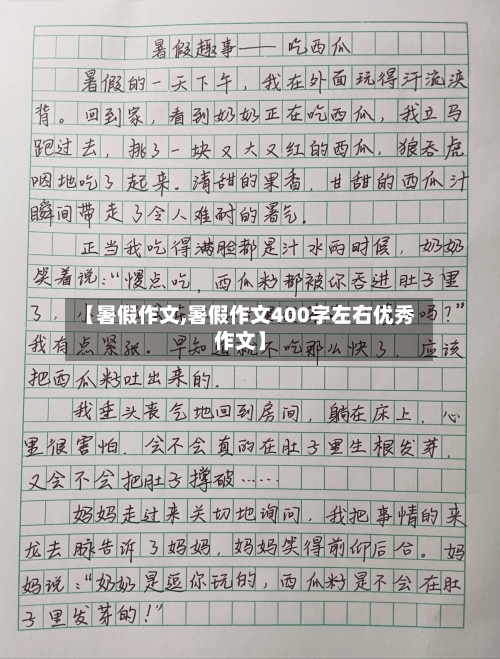 暑假趣事——吃西瓜
暑假的一天下午，我在外面玩得汗流浃
背。回到家，看到奶奶正在吃西瓜，我立马
跑过去，挑了一块又大又红的西瓜，狼吞虎
咽地吃了起来。清甜的果香，甘甜的西瓜汁
瞬间带走了令人难耐的暑气。
正当我吃得满脸都是汁水雨时候，奶奶
笑着说：“慢点吃，西瓜籽都被你吞进肚子里
了，小 吗？”
【暑假作文,暑假作文400字左右优秀
作文】
我有点紧张。早知 就不吃那么快了，应该
把西瓜籽吐出来的。
我垂头丧气地回到房间，躺在床上，心
里很害怕，会不会真的在肚子里生根发芽，
又会不会把肚子撑破……
妈妈走过来关切地询问，我把事情的来
龙去脉告诉了妈妈，妈妈笑得前仰后合。妈
妈说：“奶奶是逗你玩的，西瓜籽是不会在肚
子里发芽的！”